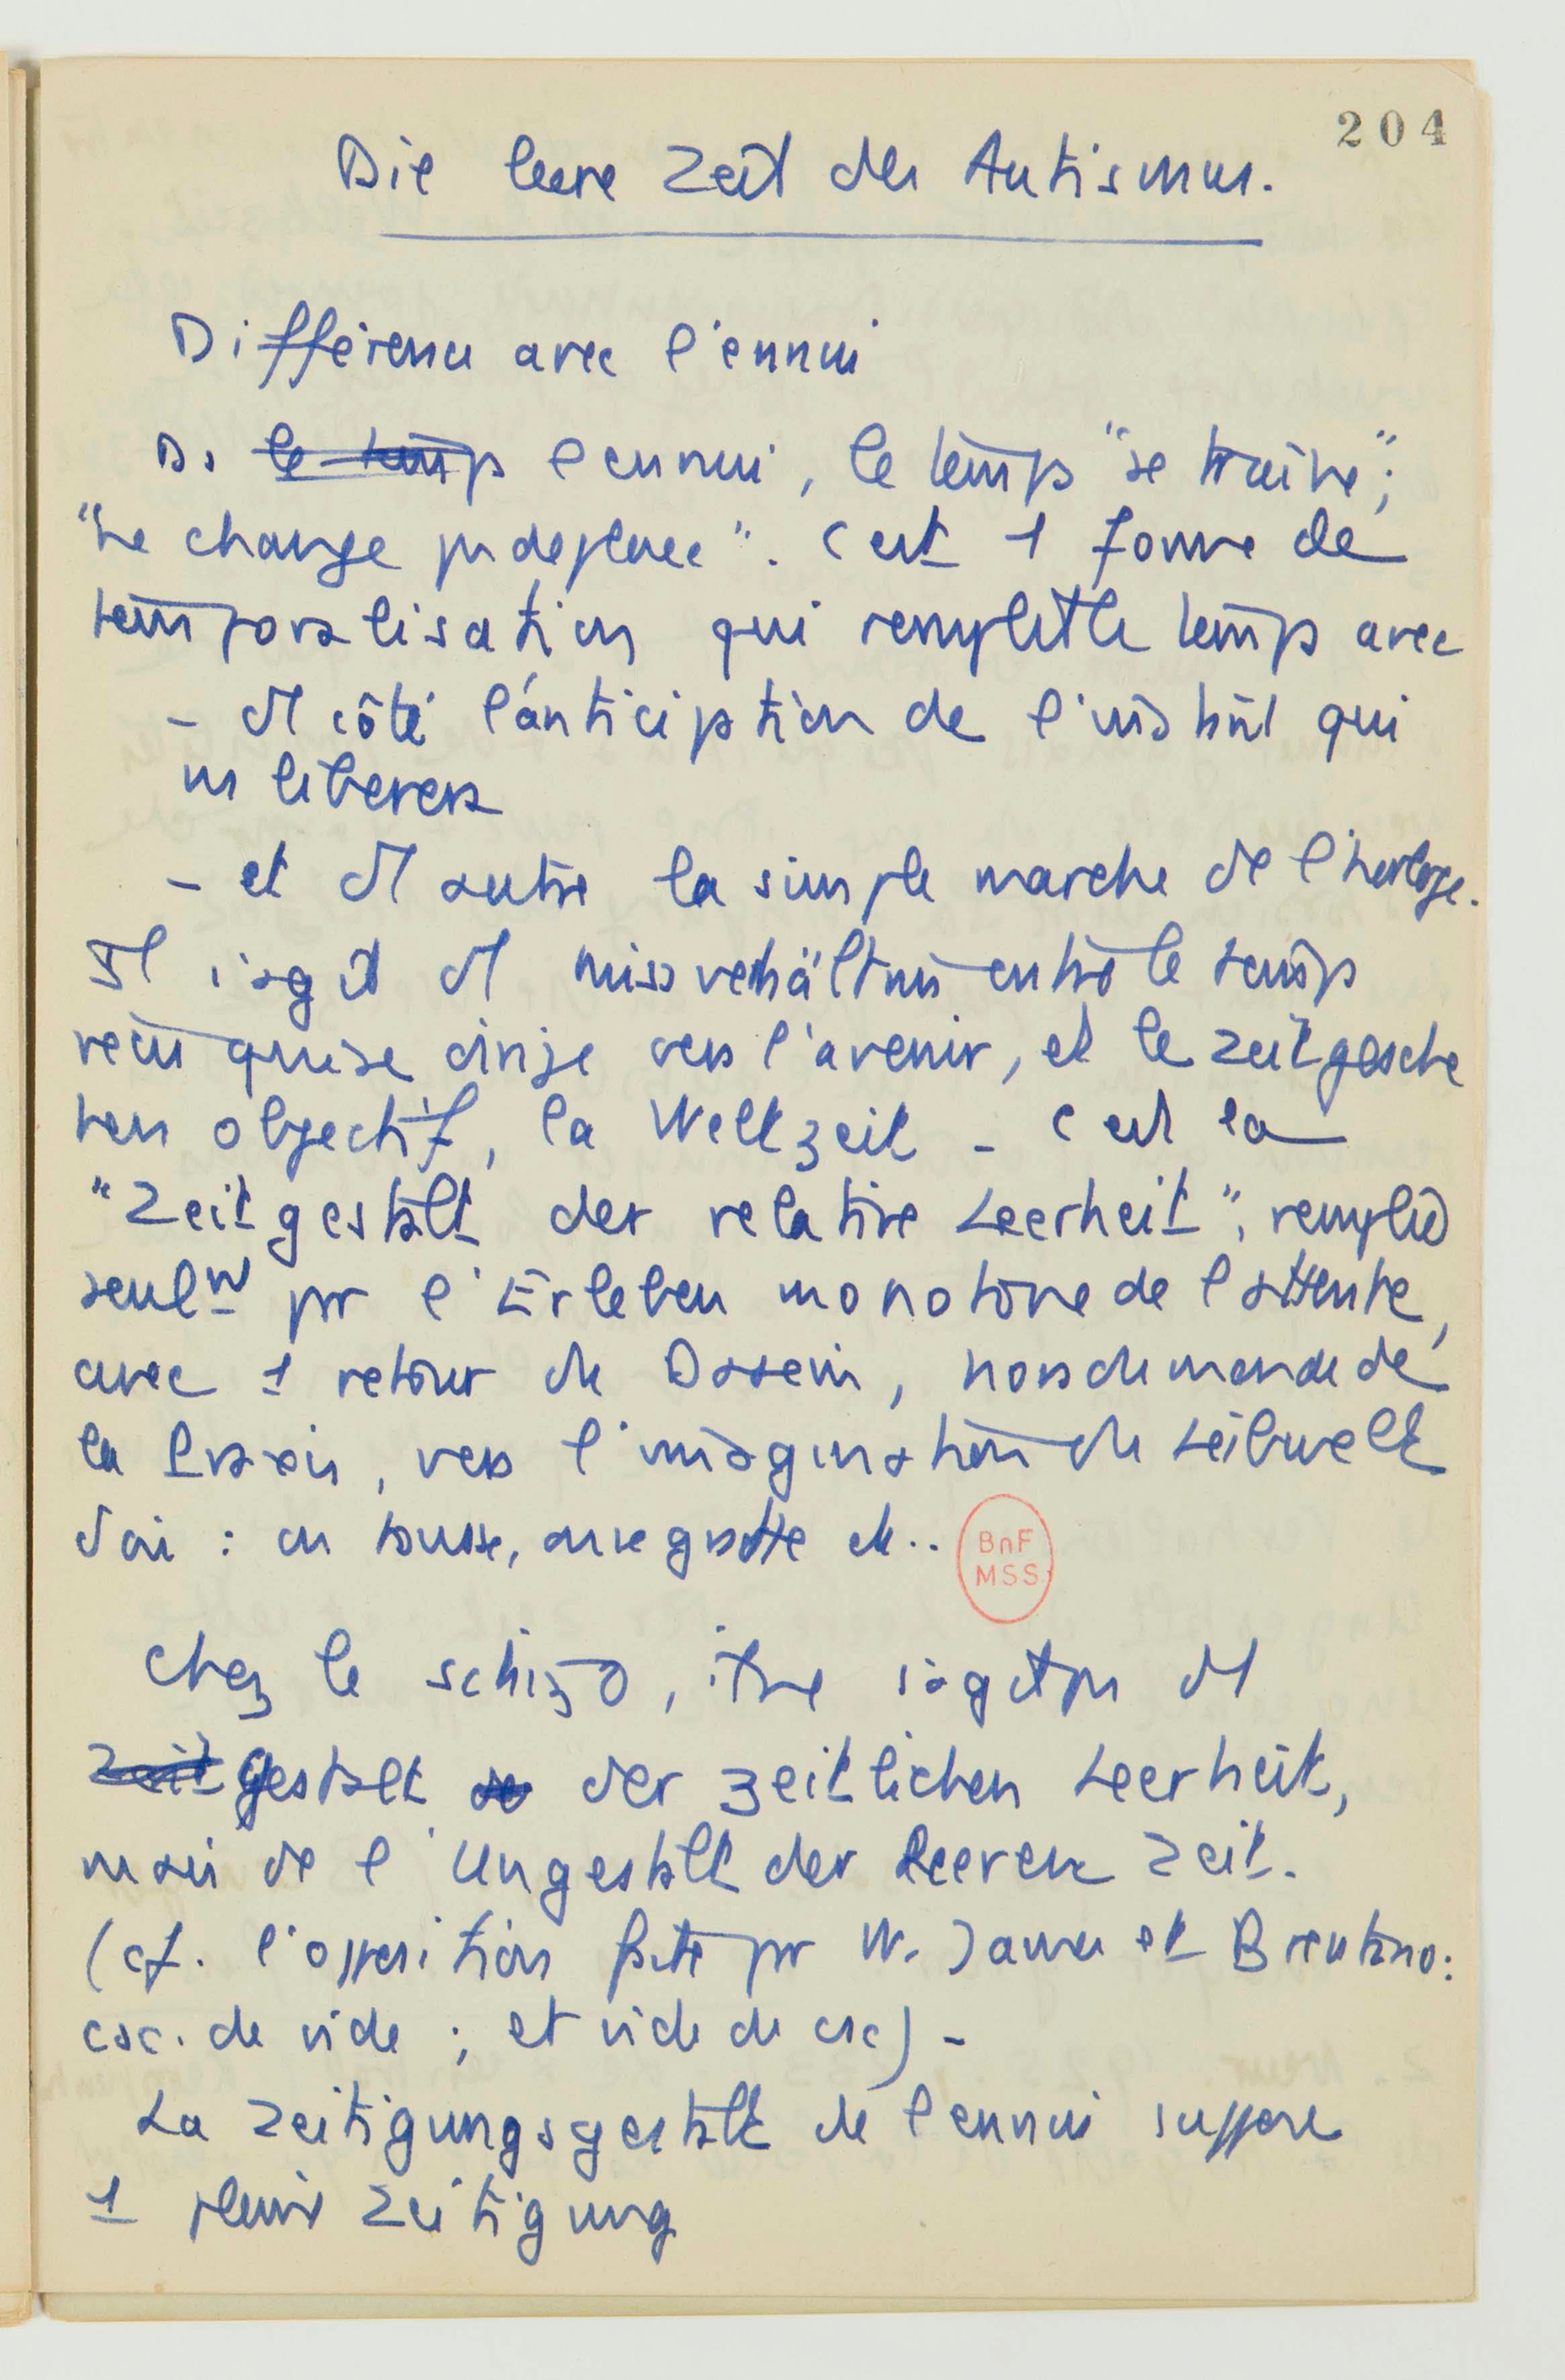 204
Die leere Zeit des Autismus.
Différence avec l'ennui
Ds le temps l'ennui, le temps "se traîne";
"ne change pas de place". C'est 1 forme de
temporalisation qui remplit le temps avec
- d'1 côté l'anticipation de l'instant qui
ns libérera
- et d'1 autre la simple marche de l'horloge.
Il s'agit d'1 missverhältnis entre le temps
vécu qui se dirige vers l'avenir, et le zeitgesche
hen objectif, la Weltzeit - C'est la
"Zeitgestalt der relative Leerheit", remplie
seulmt par l'Erleben monotone de l'attente,
avec 1 retour du Dasein, non de monde de
la, vers l'imagination du Leibwelt
d'où : on tousse, on se gratte etc..
BnF
MSS
Chez le schizo, il ne s'agit pas d'1
Zeit gestalt de der zeitlichen Leerheit,
mais de l'Ungestalt der leeren Zeit.
(cf. l'opposition faite par W. James et Brentano:
csc. de vide ; et vide de csc) -
La zeitigungsgestalt de l'ennui suppose
1 pleine Zeitigung